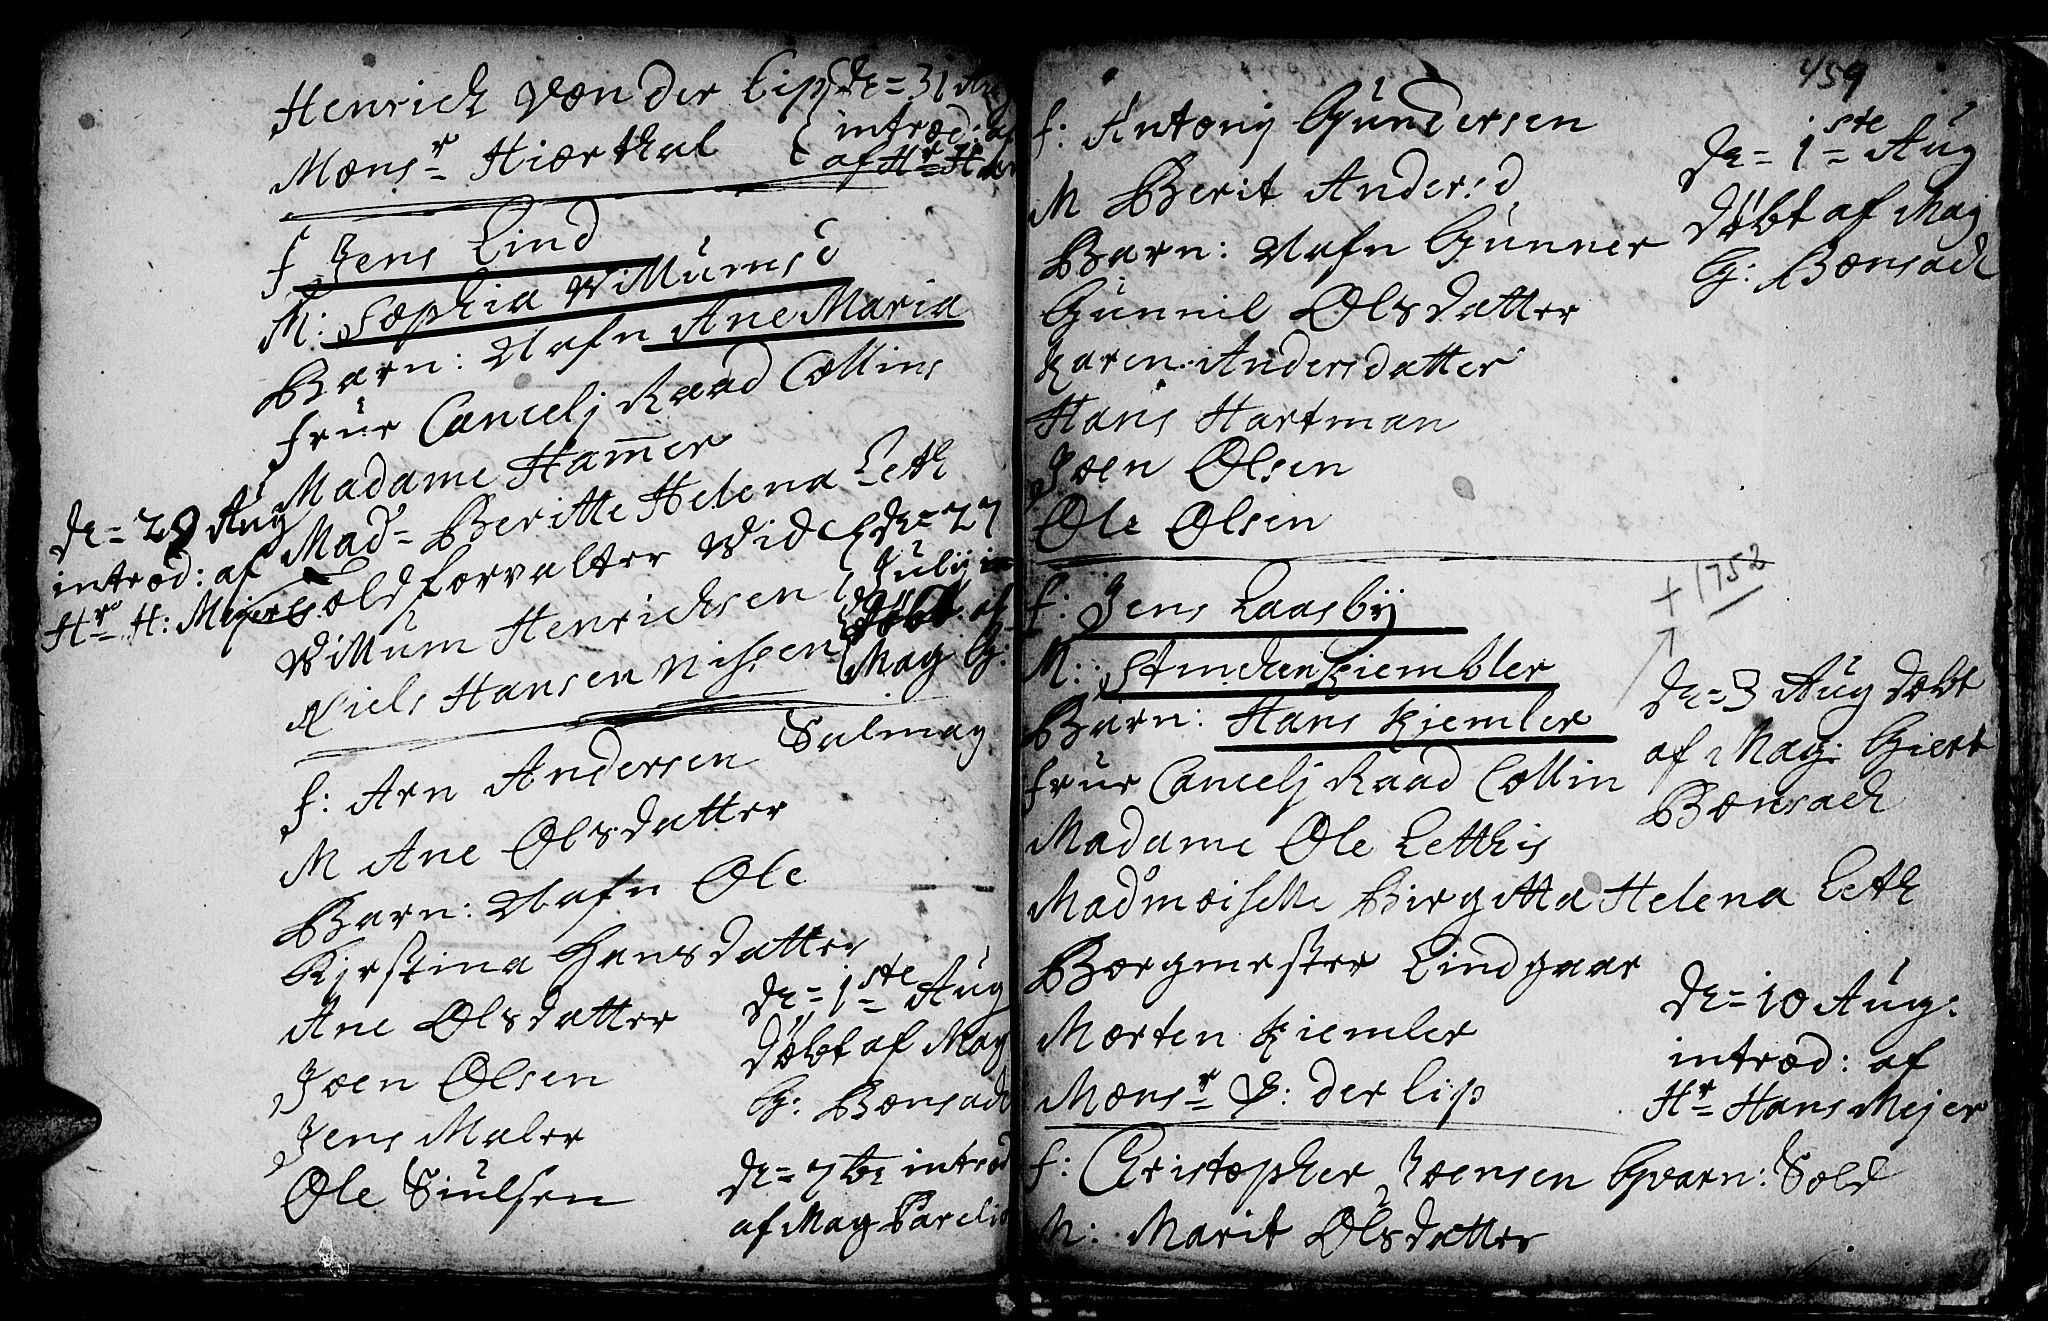 Henrich von der Lip
Mons.r Hiorthal
d = 31 Aug
introd:
af Hr= H
f Jens Lind
M: Sophia Villumsd
Barn: Nafn Ane Maria
frur Cancelj Raad Collins
Madame Hamer
Mad= Beritte Helena Leth
Toldforvalter Wid
Villum Henrichsen
Niels Hansen Nissen
d = 29 Aug
introd: af
Hr= H: Mejer
d = 27
Julij
døbt af
Mag G:
f: Arn Andersen Solmag
M Ane Olsdatter
Barn: Nafn Ole
Kirstina Hansdatter
Ane Olsdatter
Joen Olsen
Jens Maler
Ole Siulsen
d = 1ste Aug
døbt af Mag
G: Bonsach
d = 7br introd
af Mag Parelius
459
f: Antony Gundersen
M Berit Anders:d
Barn: Nafn Gunner
Gunnil Olsdatter
Karen Andersdatter
Hans Hartman
Joen Olsen
Ole Olsen
d = 1ste Aug
døbt af Mag
G: Bonsach
f: Jens Laasby
M: Anichen Kiembler
Barn: Hans Kiemler
frur Cancelj Raad Collin
Madame Ole Lethis
Madmoiselle Birgitta Helena Leth
Borgmester Lindgaar
Morten Kiemler
Mons.r v: der Lip
+ 1752
d = 3 Aug døbt
af Mag: Giert
Bonsach
d = 10 Aug:
introd: af
Hr= Hans Mejer
f: Christopher Joensen Gvarn: Sold
M: Marit Olsdatter